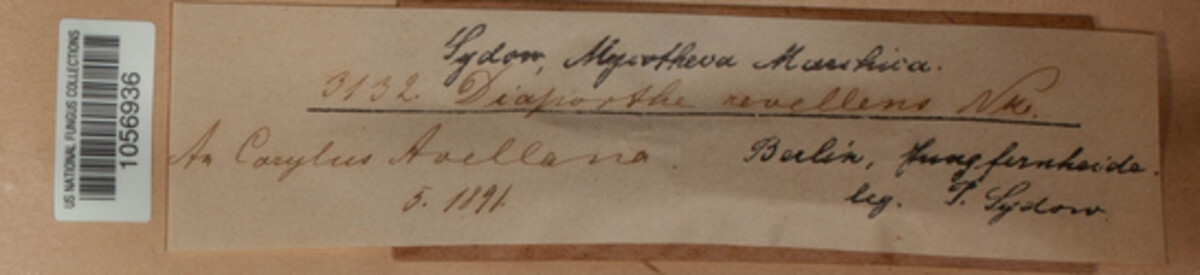 US NATIONAL FUNGUS COLLECTIONS
10569936
Sydow, Mycotheca Marchica.
3132. Diaporthe revellens Nke.
An Corylus Avellana.
Berlin, Jungfernheide.
5. 1891
leg. P. Sydow.